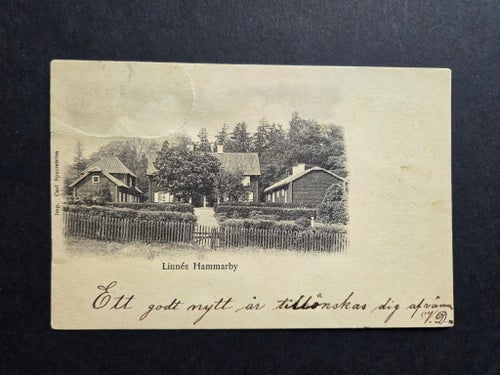 Imp. Carl Bjurström
Linnés Hammarby
Ett godt nytt år tillönskas dig af vänn
V. D.